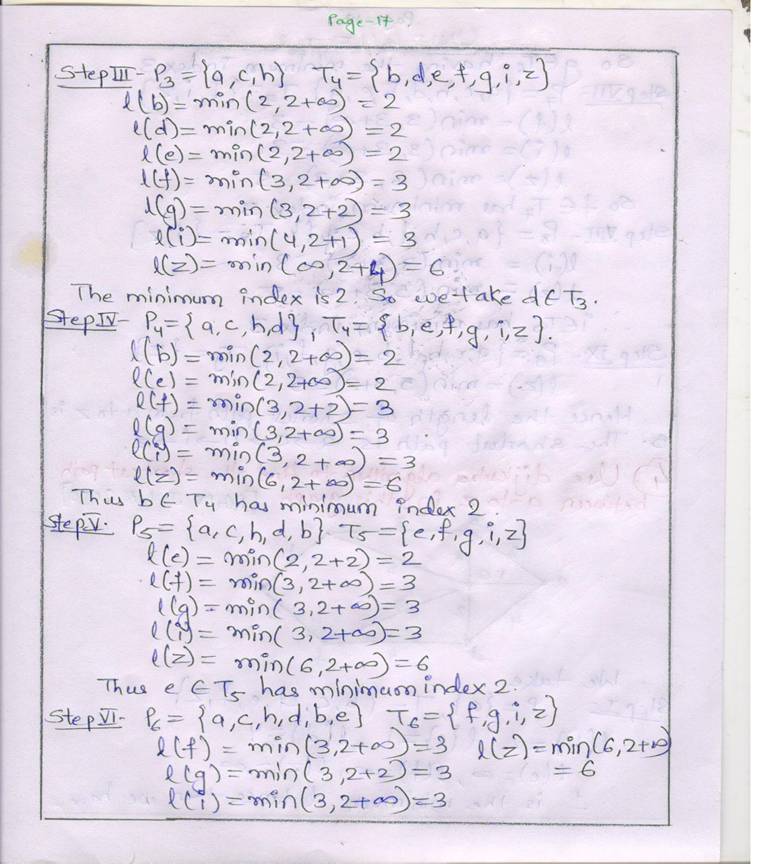 Page-17.
Step III- P3={a,c,h} T4={b,d,e,f,g,i,z}
l(b)=min(2,2+∞) = 2
l(d)=min(2,2+∞) = 2
l(e)=min(2,2+∞) = 2
l(f)= min(3,2+∞) = 3
l(g)=min(3,2+2) = 3
l(i)=min(4,2+1) = 3
l(z)=min(∞,2+4)=6.
The minimum index is 2. So we take d∈T3.
Step IV- P4={a,c,h,d}, T4={b,e,f,g,i,z}.
l(b)=min(2,2+∞)= 2
l(e)=min(2,2+∞)=2
l(f)=min(3,2+2)= 3
l(g)=min(3,2+∞)=3
l(i)=min(3,2+∞)=3
l(z)=min(6,2+∞)=6
Thus b∈T4 has minimum index 2.
Step V. P5={a,c,h,d,b} T5={e,f,g,i,z}
l(e)=min(2,2+2)=2
l(f)=min(3,2+∞)=3
l(g)=min(3,2+∞)=3
l(i)=min(3,2+∞)=3
l(z)= min(6,2+∞)=6
Thus e∈T5 has minimum index 2.
Step VI- P6={a,c,h,d,b,e} T6={f,g,i,z}
l(f)=min(3,2+∞)=3 l(z)=min(6,2+∞)
l(g)=min(3,2+2)=3 =6
l(i)=min(3,2+∞)=3